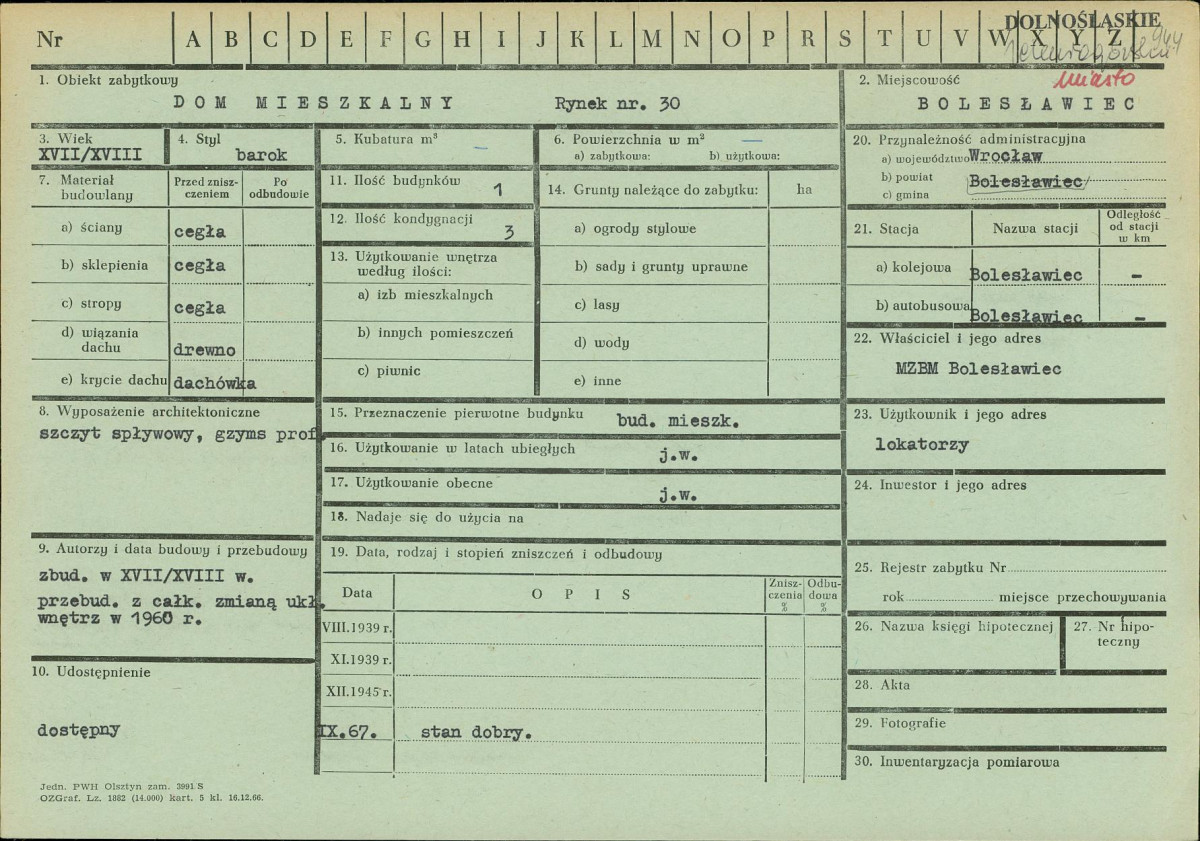 DOLNOŚLĄSKIE
Nr A B C D E F G H I J K L M N O P R S T U V W X Y Z
944
miasto
1. Obiekt zabytkowy
DOM MIESZKALNY Rynek nr. 30
2. Miejscowość
BOLESŁAWIEC
3. Wiek
XVII/XVIII
4. Styl
barok
5. Kubatura m³ —
6. Powierzchnia w m² —
a) zabytkowa: b) użytkowa:
7. Materiał budowlany
Przed zniszczeniem
Po odbudowie
a) ściany cegła
b) sklepienia cegła
c) stropy cegła
d) wiązania dachu drewno
e) krycie dachu dachówka
8. Wyposażenie architektoniczne
szczyt spływowy, gzyms prof.
9. Autorzy i data budowy i przebudowy
zbud. w XVII/XVIII w.
przebud. z całk. zmianą ukł.
wnętrz w 1960 r.
10. Udostępnienie
dostępny
11. Ilość budynków 1
12. Ilość kondygnacji 3
13. Użytkowanie wnętrza
według ilości:
a) izb mieszkalnych
b) innych pomieszczeń
c) piwnic
14. Grunty należące do zabytku: ha
a) ogrody stylowe
b) sady i grunty uprawne
c) lasy
d) wody
e) inne
15. Przeznaczenie pierwotne budynku bud. mieszk.
16. Użytkowanie w latach ubiegłych j.w.
17. Użytkowanie obecne j.w.
18. Nadaje się do użycia na
19. Data, rodzaj i stopień zniszczeń i odbudowy
Data OPIS Zniszczenia % Odbudowa %
VIII.1939 r.
XI.1939 r.
XII.1945 r.
IX.67. stan dobry.
20. Przynależność administracyjna
a) województwo Wrocław
b) powiat Bolesławiec
c) gmina
21. Stacja Nazwa stacji Odległość od stacji w km
a) kolejowa Bolesławiec -
b) autobusowa Bolesławiec -
22. Właściciel i jego adres
MZBM Bolesławiec
23. Użytkownik i jego adres
lokatorzy
24. Inwestor i jego adres
25. Rejestr zabytku Nr
rok miejsce przechowywania
26. Nazwa księgi hipotecznej
27. Nr hipoteczny
28. Akta
29. Fotografie
30. Inwentaryzacja pomiarowa
Jedn. PWH Olsztyn zam. 3991 S
OZGraf. Lz. 1882 (14.000) kart. 5 kl. 16.12.66.